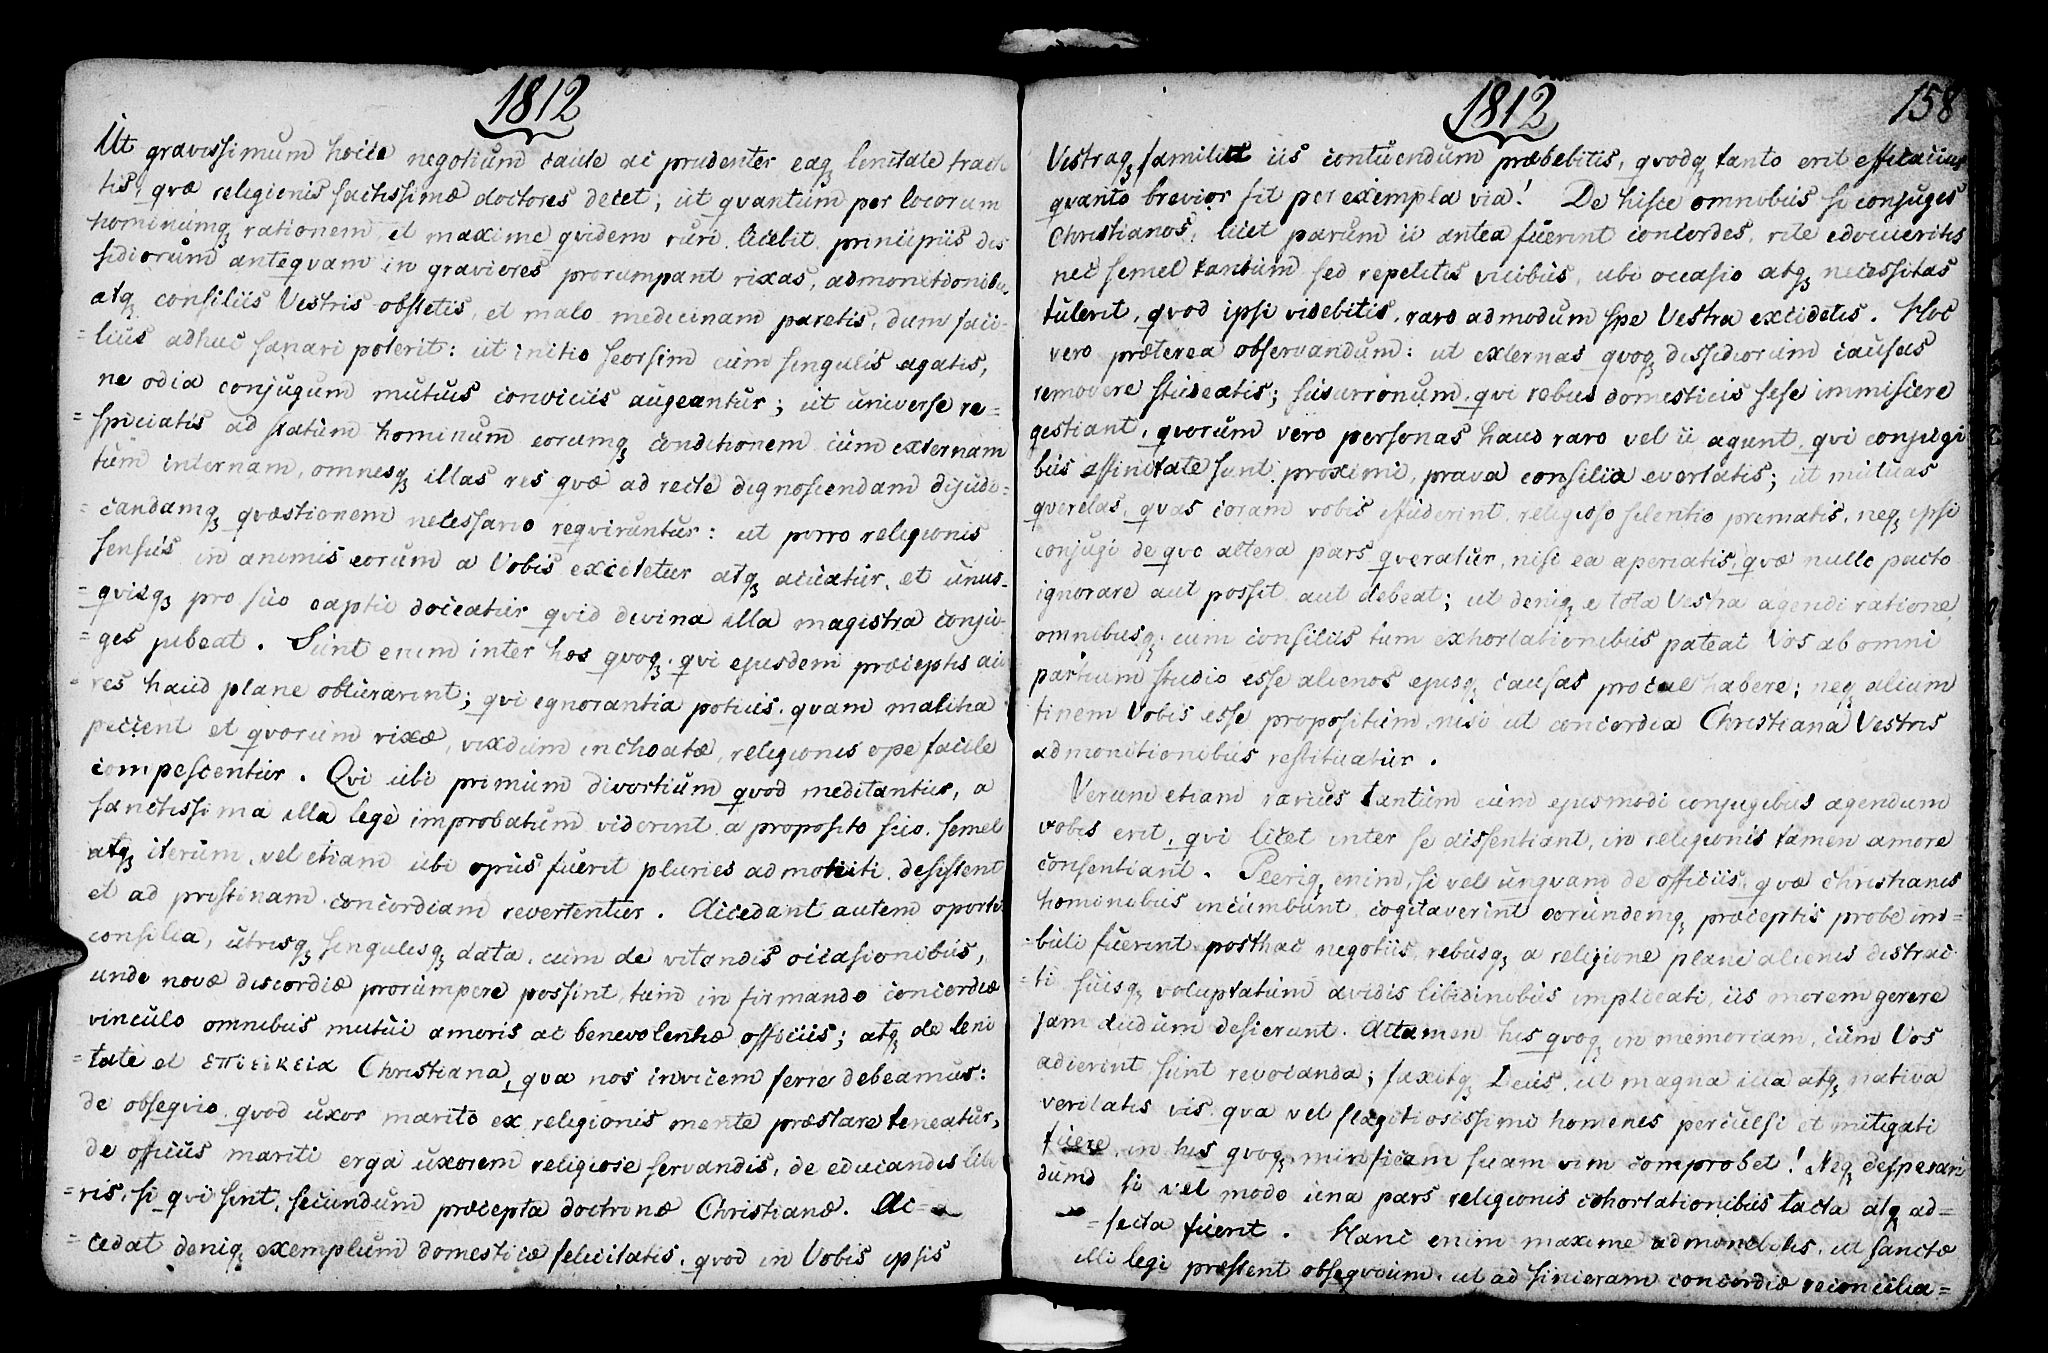 1812
Ut gravissimum hocce negotium caute ac prudenter eaq; lenitate tracte
tis, qvæ religionis sactissimæ doctores decet; ut qvantum per locorum
hominumq; rationem et maxime qvidem ruri licebit, principiis dis
sidiorum anteqvam in graviores prorumpant rixas, admonitionibus
atq; consiliis Vestris obstetis, et malo medicinam paretis, dum faci-
=lius adhuc sanari poterit: ut initio seorsim cum singulis agatis,
ne odia conjugum mutuis conviciis augeantur; ut universe re=
=spiciatis ad statum hominum eorumq; conditionem cum externam
tum internam, omnesq; illas res qvæ ad recte dignoscendam dijudi=
=candamq; qvæstionem necessario reqviruntur: ut porro religionis
sensus in animis eorum a Vobis excitetur atq; acuatur, et unus-
=qvisq; pro suo captu doceatur qvid divina illa magistra conju-
=ges jubeat. Sunt enim inter hos qvoq; qvi ejusdem præceptis au
=res haud plane obturarint; qvi ignorantia potius qvam malitia
peccent et qvorum rixæ, vixdum inchoatæ, religionis ope facile
compescentur. Qvi ubi primum divortium qvod meditantur, a
sanctissima illa lege improbatum viderint, a proposito suo, semel
atq; iterum, vel etiam ubi opus fuerit pluries admoniti, desistent
et ad pristinam concordiam revertentur. Accedant autem oportet
consilia, utrisq; singulisq; data, cum de vitandis occasionibus,
unde novæ discordiæ prorumpere possint, tum in firmando concordiæ
vinculo omnibus mutui amoris ac benevolentiæ officiis; atq; de leni
=tate et επιεικεια Christiana, qva nos invicem ferre debeamus:
de obseqvio qvod uxor marito ex religionis mente præstare teneatur,
de officiis mariti erga uxorem religiose servandis, de educandis libe
=ris, si qvi sint, secundum præcepta doctrinæ Christianæ. Ac=
=cedat deniq; exemplum domesticæ felicitatis, qvod in Vobis ipsis
1812
158
Vestraq; familia iis contuendum præbebitis, qvodq; tanto erit efficacius
qvanto brevior fit per exempla via! De hisce omnibus si conjuges
Christianos, licet parum ii antea fuerint concordes, rite edocueritis
nec semel tantum sed repetitis vicibus, ubi occasio atq; necessitas
tulerit, qvod ipsi videbitis, raro admodum spe Vestra excidetis. Hoc
vero præterea observandum: ut externas qvoq; dissidiorum causas
removere studeatis; susurronum, qvi rebus domesticis sese immiscere
gestiant, qvorum vero personas haud raro vel ii agunt qvi conjugi
bus affinitate sunt proximi, prava consilia evertatis; ut mutuas
qverelas, qvas coram vobis effuderint, religioso silentio prematis, neq; ipsi
conjugi de qvo altera pars qveratur, nisi ea aperiatis, qvæ nullo pacto
ignorare aut possit aut debeat; ut deniq; e tota Vestra agendi ratione,
omnibusq; cum consiliis tum exhortationibus pateat Vos ab omni
partium studio esse alienos ejusq; causas procul habere; neq; alium
finem Vobis esse propositum, nisi ut concordia Christiana Vestris
admonitionibus restituatur.
Verum etiam rarius tantum cum ejusmodi conjugibus agendum
vobis erit, qvi licet inter se dissentiant, in religionis tamen amore
consentiant. Pleriq; enim, si vel unqvam de officiis, qvæ christianis
hominibus incumbunt, cogitaverint eorundemq; præceptis probe im=
=buti fuerint posthac negotiis, rebusq; a religione plane alienis distrac
=ti, suisq; voluptatum avidis libidinibus implicati, iis morem gerere
jam dudum desierunt. Attamen his qvoq; in memoriam, cum Vos
adierint, sunt revocanda; faxitq; Deus, ut magna illa atq; nativa
veritatis vis, qva vel flagitiosissimi homines perculsi et mitigati
fuere, in his qvoq; mirificam suam vim comprobet! Neq; desperan
dum si vel modo una pars religionis cohortationibus tacta atq; ad=
=fecta fuerit. Hanc enim maxime admonebitis, ut sanctæ
illi legi præstent obseqvium, ut ad sinceram concordiæ reconcilia=